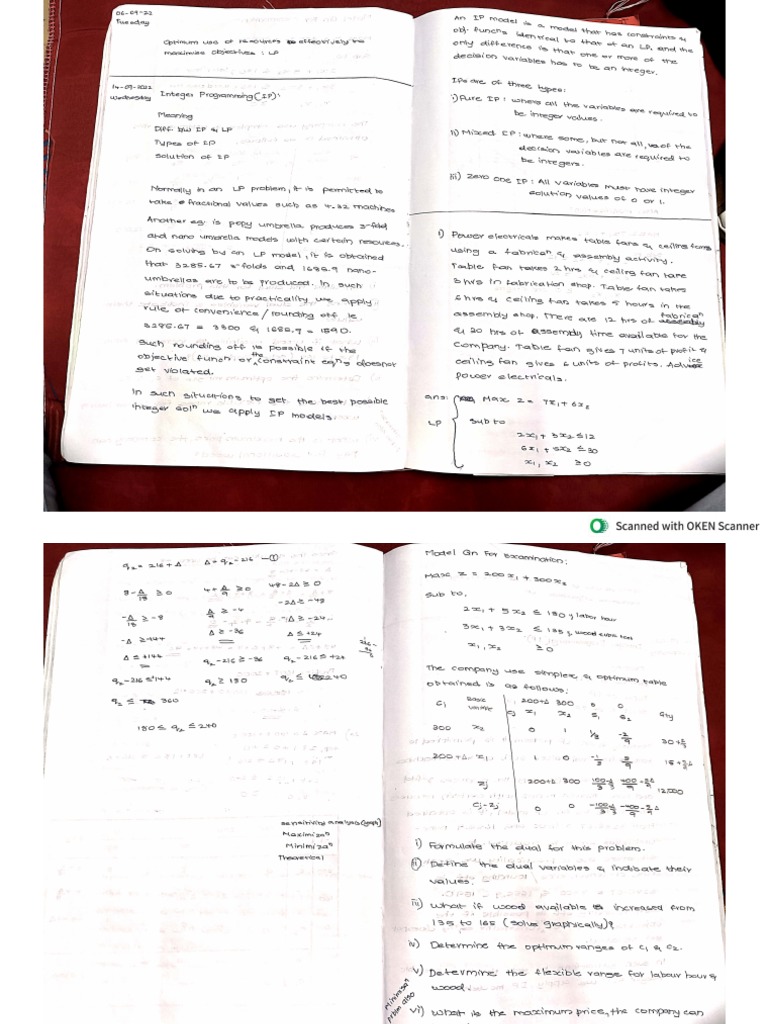 06-09-22
Tuesday
Optimum use of resources effectively to
maximise objectives : LP
14-09-2022
Wednesday
Integer Programming (IP):
Meaning
Diff b/w IP & LP
Types of IP
Solution of IP
Normally in an LP problem, it is permitted to
take fractional values such as 4.32 machines
Another eg is popy umbrella produces 3-fold
and nano umbrella models with certain resources.
On solving by an LP model, it is obtained
that 3285.67 3-folds and 1689.9 nano-
umbrellas are to be produced. In such
situations due to practicality we apply
rule of convenience / rounding off ie
3285.67 = 3300 & 1689.9 = 1690.
Such rounding off is possible if the
objective funcn or the constraint eqns doesnot
get violated.
In such situations to get the best possible
integer soln we apply IP models.
An IP model is a model that has constraints &
obj. funcns identical to that of an LP, and the
only difference is that one or more of the
decision variables has to be an integer.
IPs are of three types:
i) Pure IP: where all the variables are required to
be integer values.
ii) Mixed IP: where some, but not all, of the
decision variables are required to
be integers.
iii) Zero one IP: All variables must have integer
solution values of 0 or 1.
1) Power electricals makes table fans & ceiling fans
using a fabrican & assembly activity.
Table fan takes 2 hrs & ceiling fan take
3 hrs in fabrication shop. Table fan takes
6 hrs & ceiling fan takes 5 hours in the
assembly shop. There are 12 hrs of fabrican
& 30 hrs of assembly time available for the
company. Table fan gives 7 units of profit &
ceiling fan gives 6 units of profits. Advice
power electricals.
ans: Max Z = 7x₁ + 6x₂
LP
Sub to
2x₁ + 3x₂ ≤ 12
6x₁ + 5x₂ ≤ 30
x₁, x₂ ≥ 0
Scanned with OKEN Scanner
q₂ = 216 + Δ Δ = q₂ - 216 —①
8 - Δ/18 ≥ 0 4 + Δ/9 ≥ 0 48 - 2Δ ≥ 0
-Δ/18 ≥ -8 Δ/9 ≥ -4 -2Δ ≥ -48
-Δ ≥ -144 Δ ≥ -36 -Δ ≥ -24
Δ ≤ +144 Δ ≤ +24
q₂ - 216 ≤ 144 q₂ - 216 ≥ -36 q₂ - 216 ≤ +24
q₂ ≤ 360 q₂ ≥ 180 q₂ ≤ 240
180 ≤ q₂ ≤ 240
sensitivity analysis (graph)
Maximizan
Minimizan
Theoretical
Model Qn For Examination:
Max Z = 200x₁ + 300x₂
Sub to,
2x₁ + 5x₂ ≤ 180 labour hour
3x₁ + 3x₂ ≤ 135
x₁, x₂ ≥ 0
The company use simplex & optimum table
obtained is as follows:
Cj Basic variable 200+Δ 300 0 0
Cj x₁ x₂ S₁ S₂ Qty
300 x₂ 0 1 1/3 -2/9
200+Δ x₁ 1 0 -1/3 5/9
Zj 200+Δ 300 12,000
Cj-Zj 0 0
i) Formulate the dual for this problem.
ii) Define the dual variables & indicate their
values.
iii) What if wood available is increased from
135 to 165 (solve graphically)?
iv) Determine the optimum ranges of c₁ & c₂.
v) Determine the flexible range for labour hour &
wood.
vi) What is the maximum price, the company can